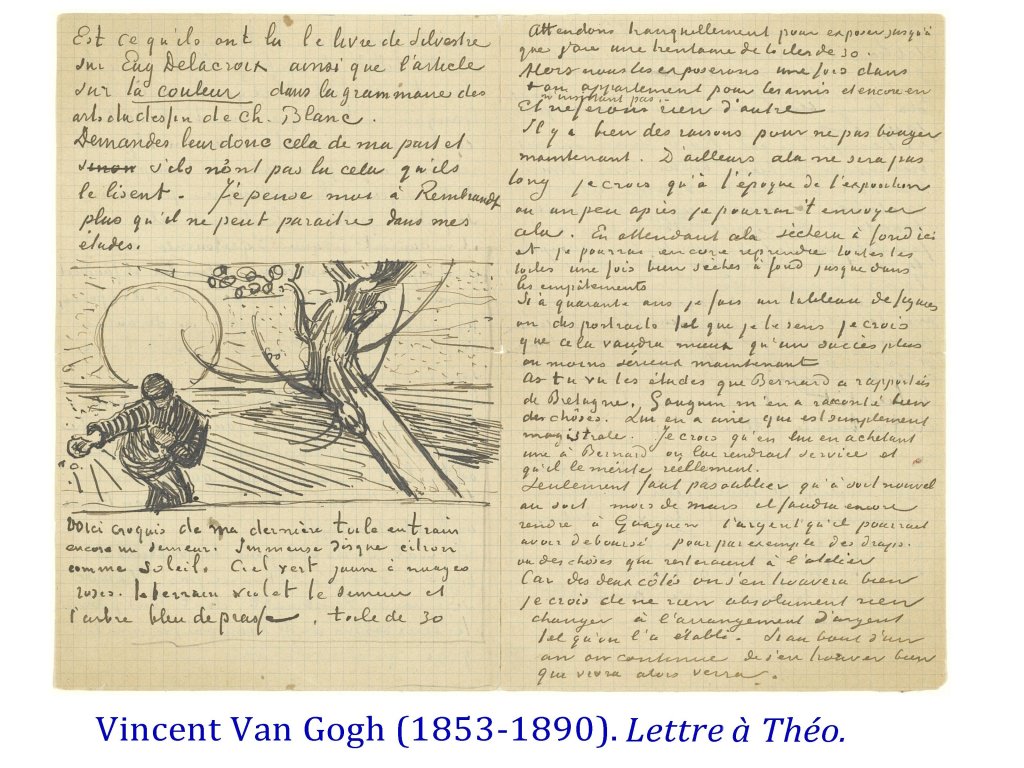 Est ce qu'ils ont lu le livre de Silvestre
sur Eug Delacroix ainsi que l'article
sur la couleur dans la grammaire des
arts du dessin de Ch. Blanc.
Demandes leur donc cela de ma part et
sinon s'ils n'ont pas lu cela qu'ils
le lisent. J'épense moi à Rembrandt
plus qu'il ne peut paraitre dans mes
études.
Voici croquis de ma dernière toile en train
encore un semeur. Immense disque citron
comme soleil. Ciel vert jaune à nuages
roses. le terrain violet le semeur et
l'arbre bleu de prusse. toile de 30
Attendons tranquillement pour exposer jusqu'à
que j'aie une trentaine de toiles de 30.
Alors nous les exposerons une fois dans
ton appartement pour les amis et encore en
n'insistant pas.
Et ne ferons rien d'autre
Il y a bien des raisons pour ne pas bouger
maintenant. D'ailleurs cela ne sera pas
long je crois qu'à l'époque de l'exposition
ou un peu après je pourrai t'envoyer
cela. En attendant cela sèchera à fond ici
et je pourrai encore reprendre toutes les
toiles une fois bien sèches à fond jusque dans
les empâtements
Si à quarante ans je fais un tableau de figures
ou des portraits tel que je le sens je crois
que cela vaudra mieux qu'un succès plus
ou moins sérieux maintenant
As tu vu les études que Bernard a rapportées
de Bretagne. Gauguin m'en a raconté bien
des choses. Lui en a une qui est simplement
magistrale. Je crois qu'en lui en achetant
une à Bernard on lui rendrait service et
qu'il le mérite réellement.
Seulement faut pas oublier qu'à soit nouvel
an soit mois de mars il faudra encore
rendre à Gauguin l'argent qu'il pourrait
avoir deboursé pour par exemple des draps.
ou des choses qui resteraient à l'atelier
Car des deux côtés on s'en trouvera bien
je crois de ne rien absolument rien
changer à l'arrangement d'argent
tel qu'on l'a établi. Si au bout d'un
an on continue de s'en trouver bien
qui vivra alors verra.
Vincent Van Gogh (1853-1890). Lettre à Théo.